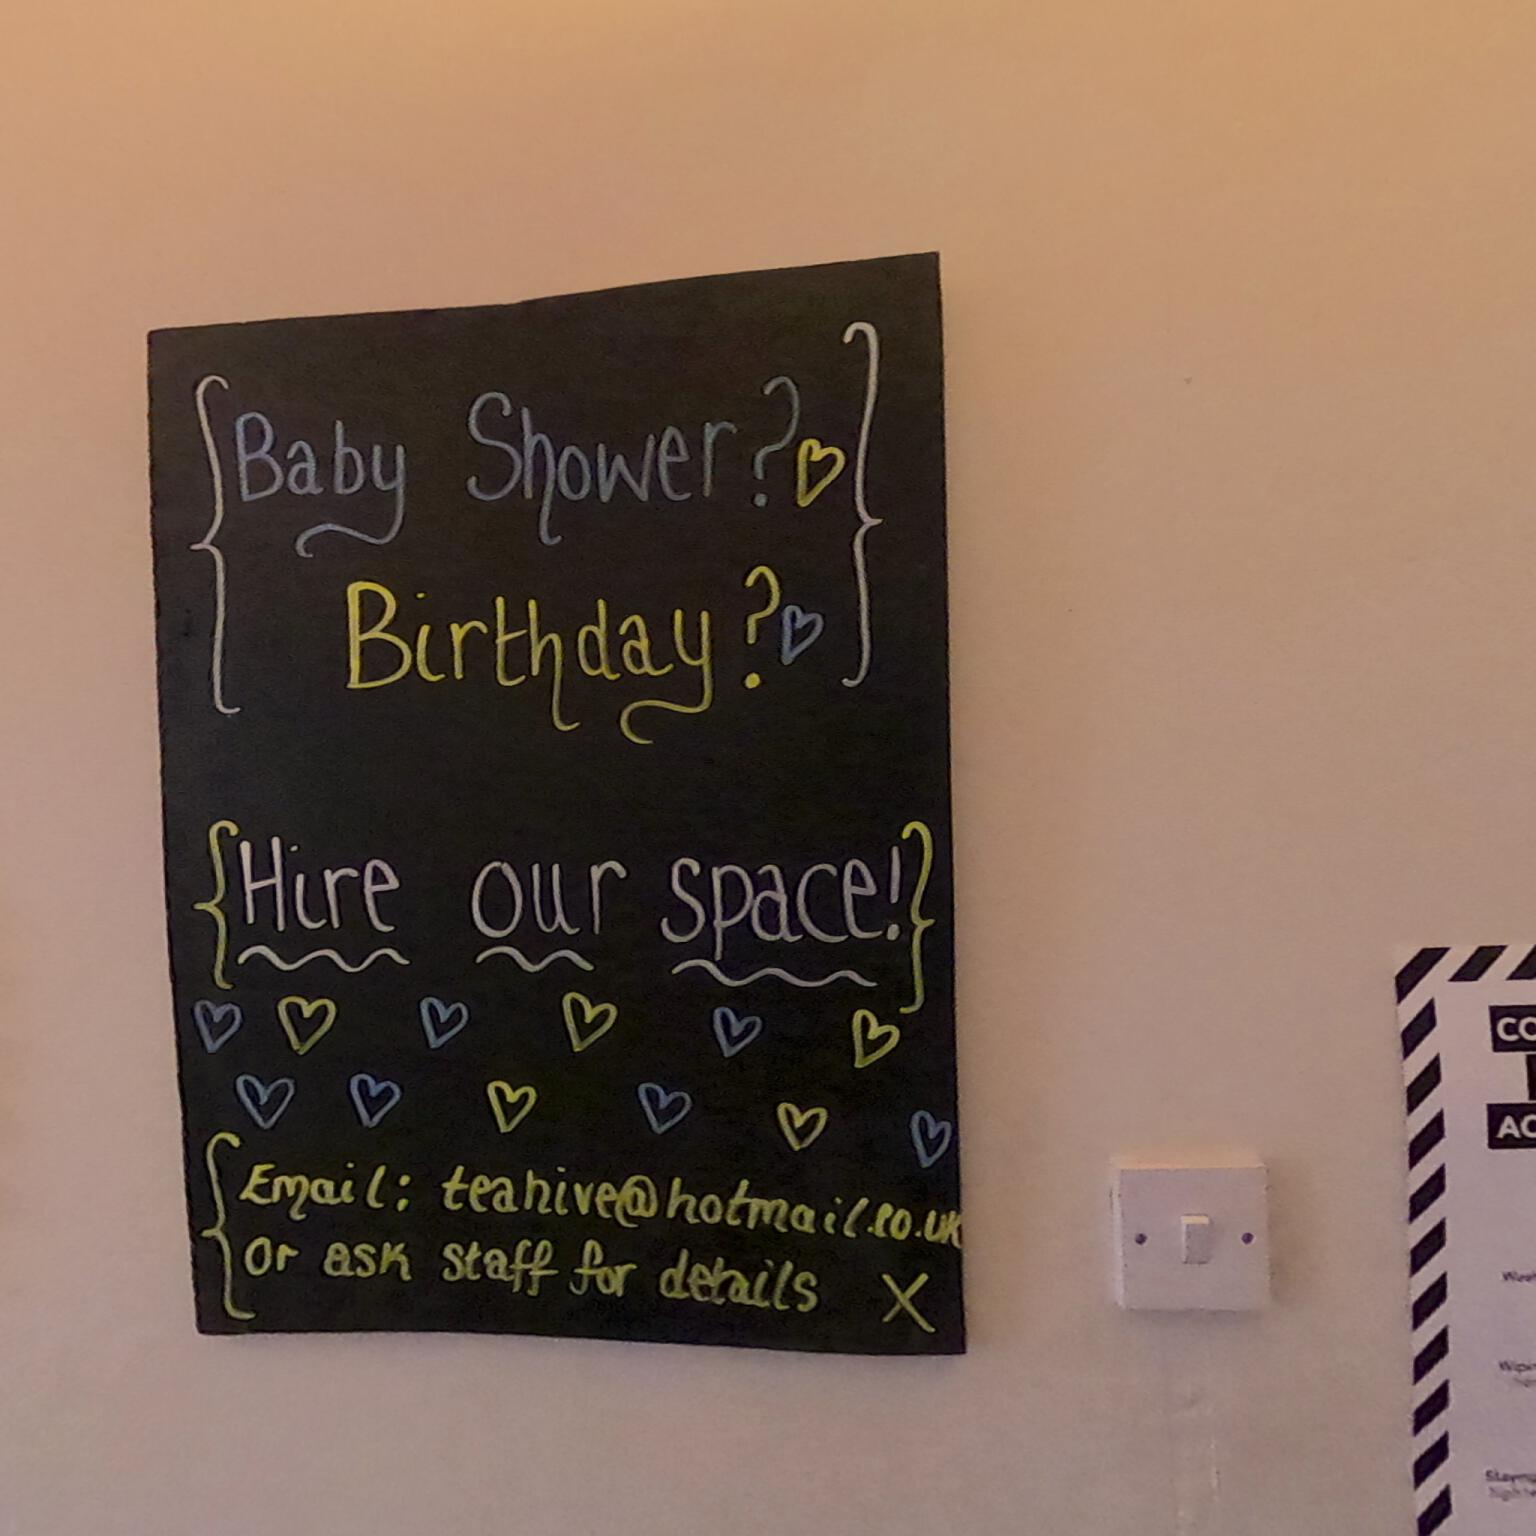 Baby Shower?
Birthday?
Hire our space!
Email: teahive@hotmail.co.uk
or ask staff for details X
CO
AC